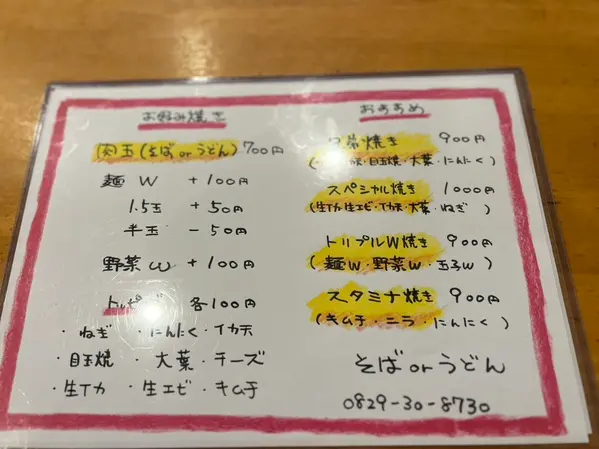 お好み焼き
肉玉(そば or うどん) 700円
麺 W + 100円
1.5玉 + 50円
半玉 - 50円
野菜 W + 100円
トッピング 各100円
・ねぎ ・にんにく・イカ天
・目玉焼 ・大葉・チーズ
・生イカ ・生エビ・キムチ
おすすめ
焼き 900円
目玉焼・大葉・にんにく)
スペシャル焼き 1000円
(生イカ・生エビ・イカ天・大葉・ねぎ)
トリプルW焼き 900円
(麺W・野菜W・玉子W)
スタミナ焼き 900円
(キムチ・ニラ・にんにく)
そば or うどん
0829-30-8730